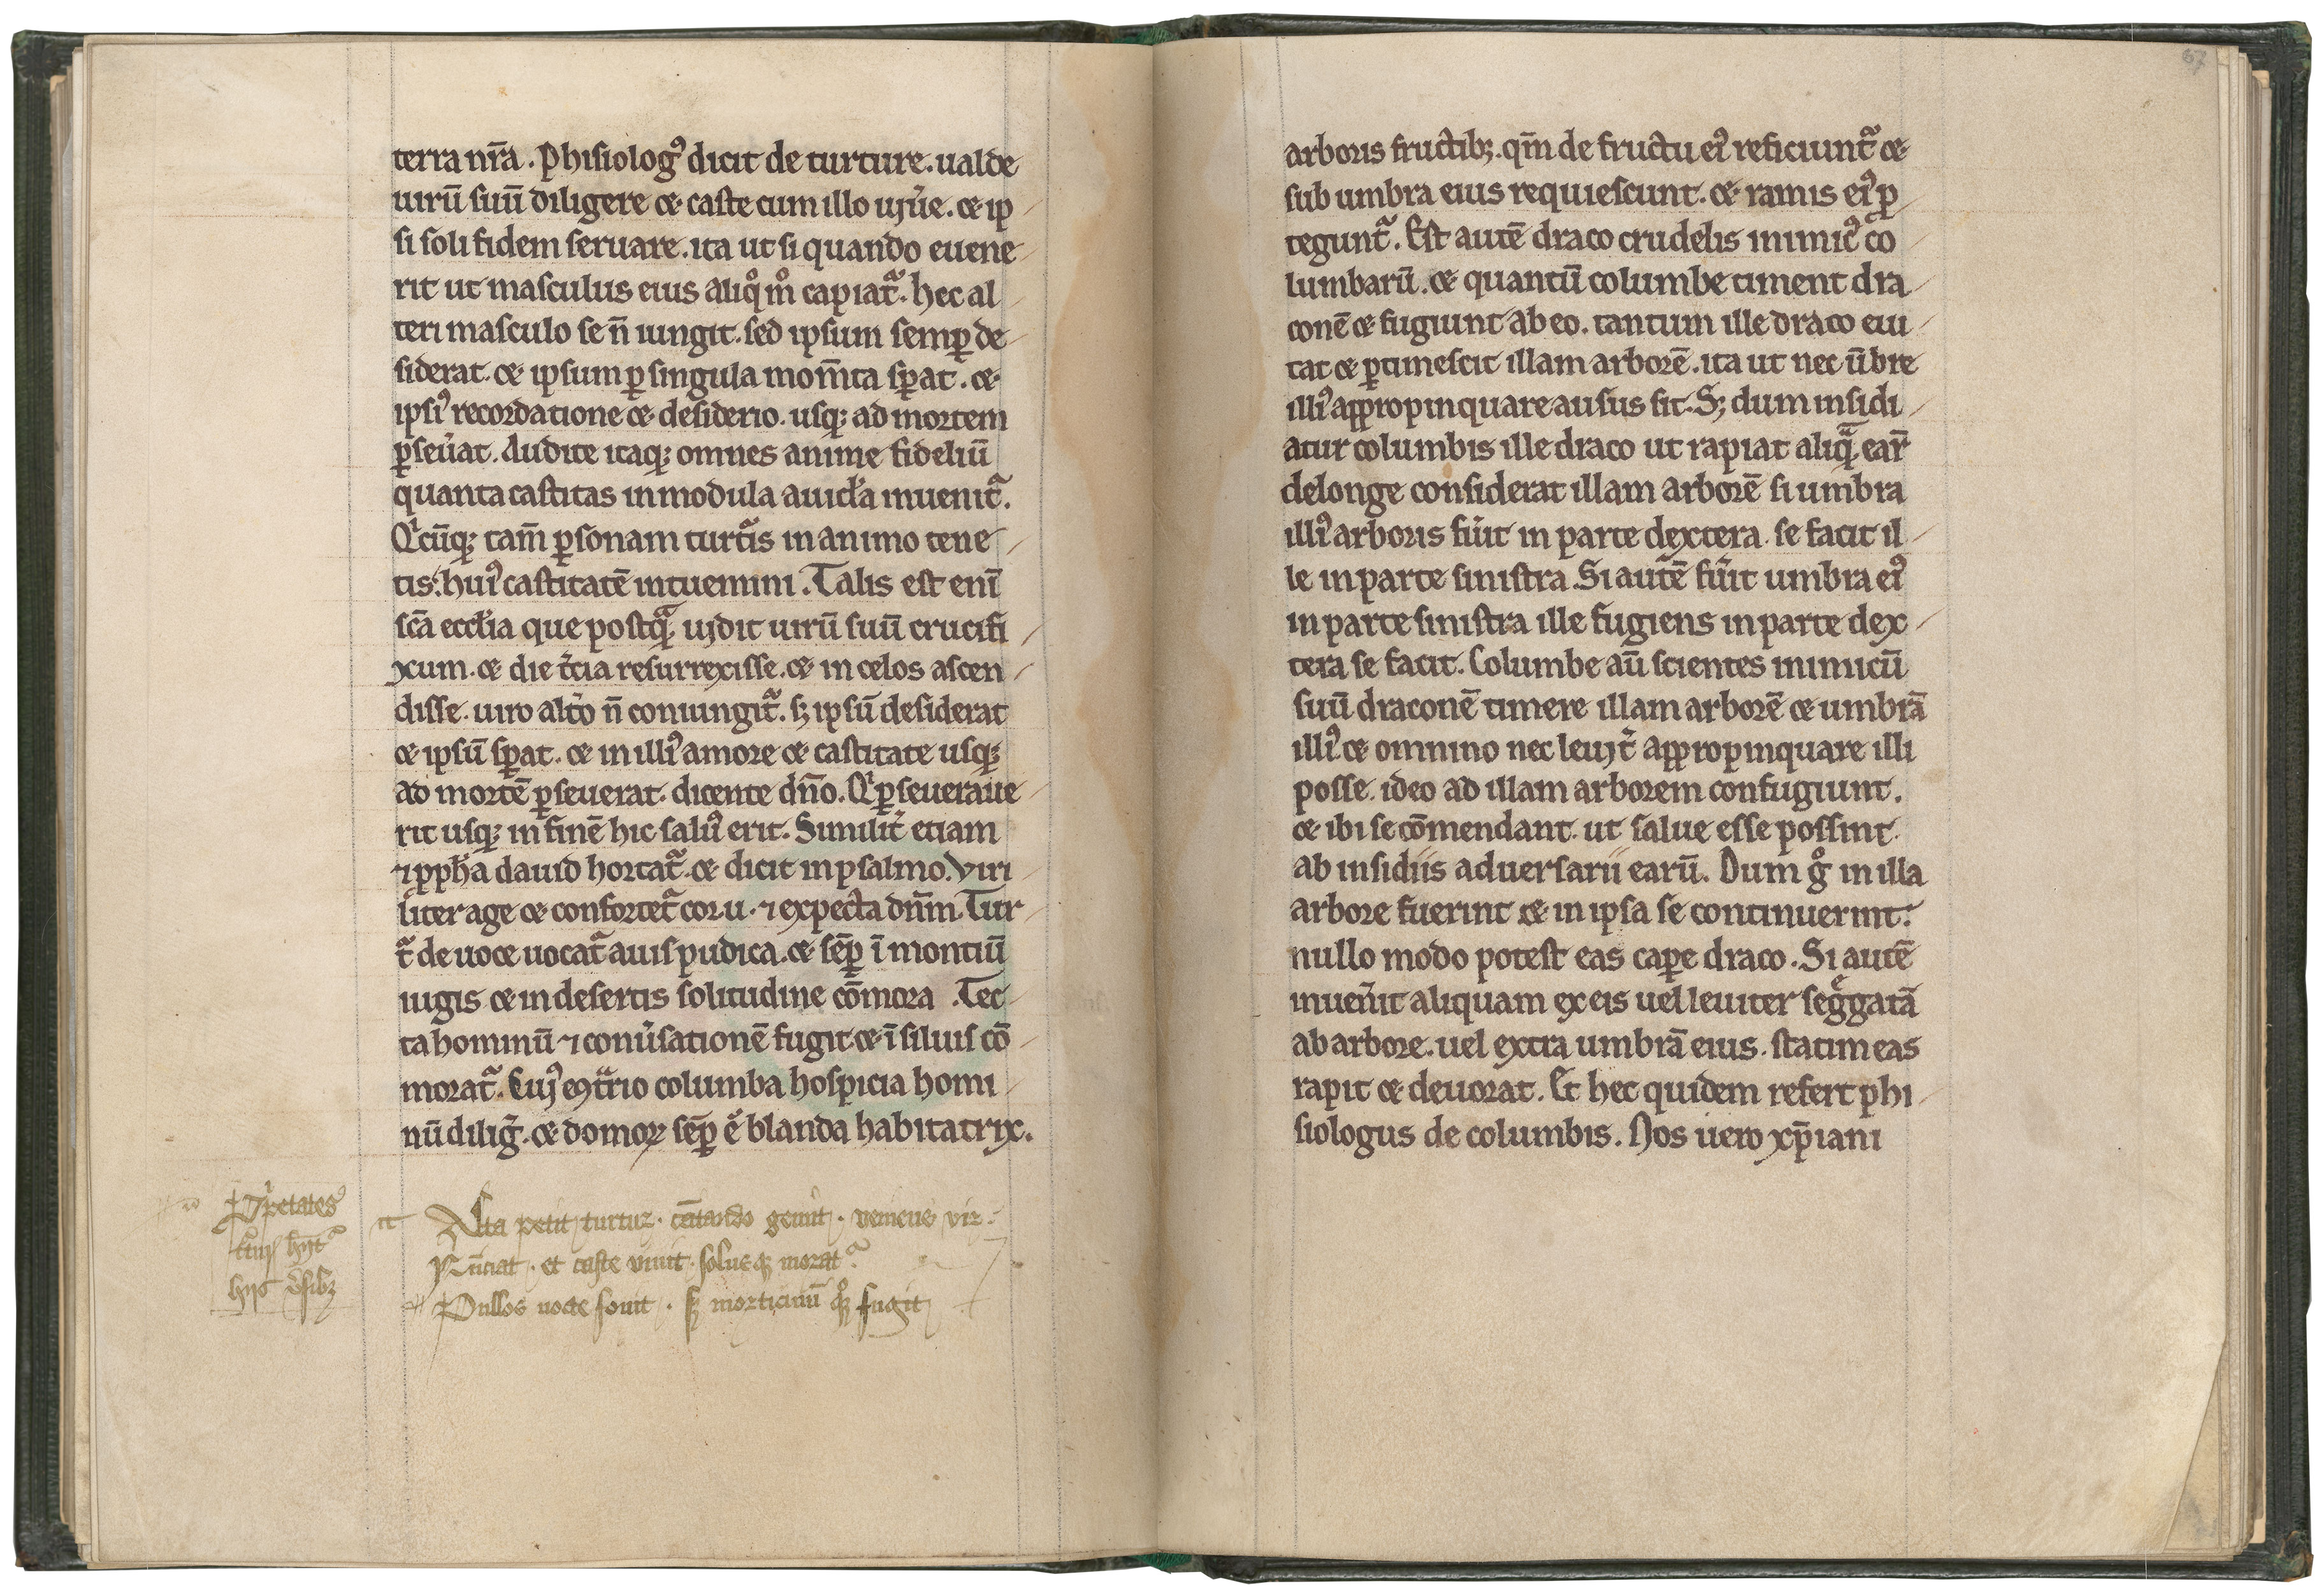 terra nr̄a . Phisiologꝰ dicit de turture . ualde
uirū suū diligere ⁊ caste cum illo uiu̾e . ⁊ ip
si soli fidem seruare . ita ut si quando euene
rit ut masculus eius aliqͦ mͦ capiat᷑ . hec al
teri masculo se n̄ iungit . sed ipsum semꝑ de
siderat . ⁊ ipsum ꝑ singula mom̄ta sꝑat . ⁊
ipsiꝰ recordatione ⁊ desiderio . usqꝫ ad mortem
ꝑseu̾at . Audite itaqꝫ omnes anime fideliū
quanta castitas in modula auicl̄a inuenit᷑ .
Qͥcūqꝫ tam̄ ꝑsonam turt᷑is in animo tene
tis : huiꝰ castitatē intuemini . Talis est enī
sc̄a eccl̄ia que postqᷓ uidit uirū suū crucifi
xcum . ⁊ die t̾cia resurrexisse . ⁊ in celos ascen
disse . uiro alt̾o n̄ coniungit᷑ . sꝫ ipsū desiderat
⁊ ipsū sꝑat . ⁊ in illiꝰ amore ⁊ castitate usqꝫ
ad mortē ꝑseuerat . dicente dn̄o . Qͥ ꝑseueraue
rit usqꝫ in finē hic saluꝰ erit . Similit̾ etiam
⁊ ꝓph̄a dauid hortat᷑ . ⁊ dicit in psalmo . Viri
liter age ⁊ confortet᷑ cor . u . ⁊ expecta dn̄m . Tur
t᷑ de uoce uocat᷑ auis pudica . ⁊ sēꝑ ī montiū
iugis ⁊ in desertis solitudine cōmora . Tec
ta hominū ⁊ conu̾sationē fugit ⁊ ī siluis cō
morat᷑ . Cuiꝰ ꝯtᷓrio columba hospicia homi
nū dilig̾ . ⁊ domoꝝ sēꝑ ē blanda habitatrix .
Ꝓpͥetates
turꝰ
hijs v̾sibꝫ
Alta petit turtur . cātando gemit . veniens vir
Nūciat . et caste viuit . solusqꝫ morat᷑
Pullos nocte fouit . sꝫ morticinū qͦꝫ fugit
67
arboris fructibꝫ . qm̄ de fructu eiꝰ reficiunt᷑ ⁊
sub umbra eius requiescunt . ⁊ ramis eiꝰ ꝓ
tegunt᷑ . Est autē draco crudelis inimicꝰ co
lumbarū . ⁊ quantū columbe timent dra
conē ⁊ fugiunt ab eo . tantum ille draco eui
tat ⁊ ꝑtimescit illam arborē . ita ut nec ūbre
illiꝰ appropinquare ausus sit . Sꝫ dum insidi
atur columbis ille draco ut rapiat aliqᷓ ear̄
delonge considerat illam arborē si umbra
illiꝰ arboris fu̾it in parte dextera . se facit il
le in parte sinistra . Si autē fu̾it umbra eiꝰ
in parte sinistra ille fugiens in parte dex
tera se facit . Columbe aū scientes inimicū
suū draconē timere illam arborē ⁊ umbrā
illiꝰ ⁊ omnino nec leuit̾ appropinquare illi
posse . ideo ad illam arborem confugiunt .
⁊ ibi se cōmendant . ut salue esse possint
ab insidiis aduersarii earū . Dum gͦ in illa
arbore fuerint ⁊ in ipsa se continuerint :
nullo modo potest eas caꝑe draco . Si autē
inuen̾it aliquam ex eis uel leuiter segͤgatā
ab arbore . uel extra umbrā eius . statim eas
rapit ⁊ deuorat . Et hec quidem refert phi
siologus de columbis . Nos uero xp̄iani